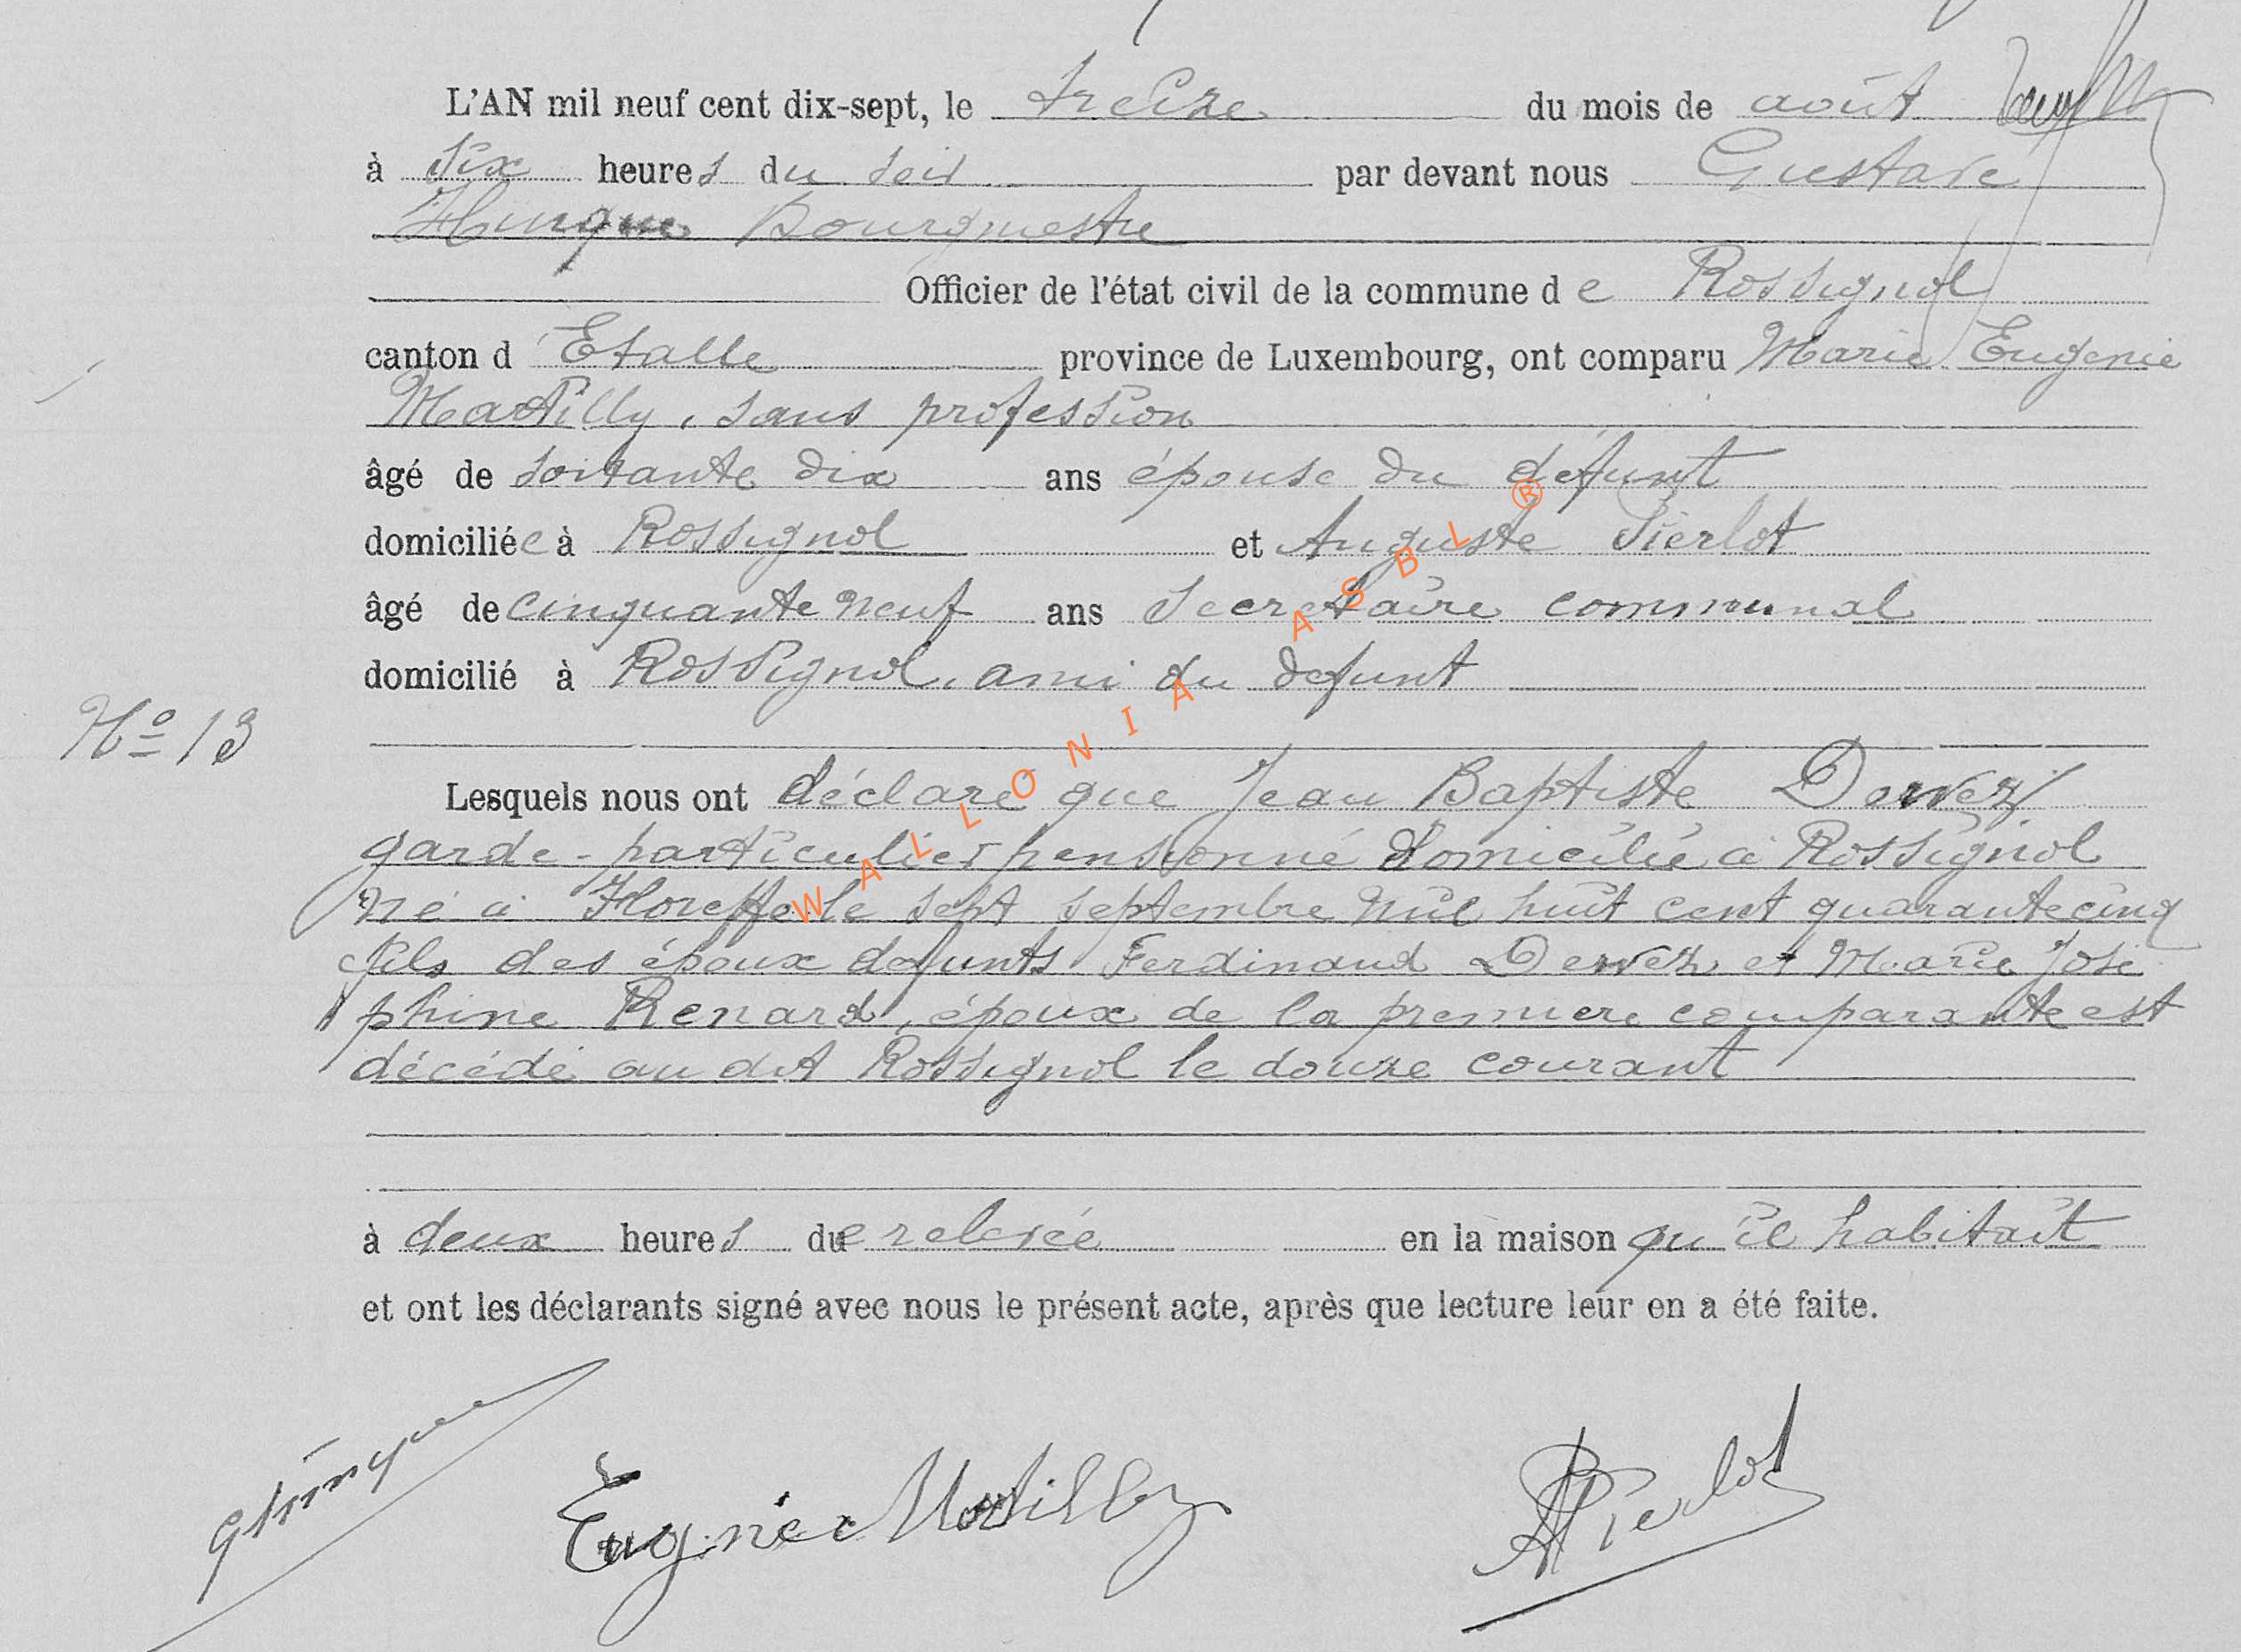 L'AN mil neuf cent dix-sept, le treize du mois de août
à six heures du soir par devant nous Gustave
Hinque Bourgmestre
Officier de l'état civil de la commune de Rossignol
canton d'Etalle province de Luxembourg, ont comparu Marie Eugenie
Martilly, sans profession
âgé de soixante dix ans épouse du défunt
domiciliée à Rossignol et Auguste Pierlot
âgé de cinquante neuf ans Secretaire communal
domicilié à Rossignol, ami du defunt
No 13
Lesquels nous ont déclaré que Jean Baptiste Dervez
garde-particulier pensionné domicilié à Rossignol
né à Floreffe le sept septembre mil huit cent quarante cinq
fils des époux defunts Ferdinand Dervez et Marie José
phine Renard, époux de la premiere comparante est
décédé au dit Rossignol le douze courant
à deux heures de relevée en la maison qu'il habitait
et ont les déclarants signé avec nous le présent acte, après que lecture leur en a été faite.
GHinque
Eugénie Martilly
APierlot
WALLONIA ASBL ®